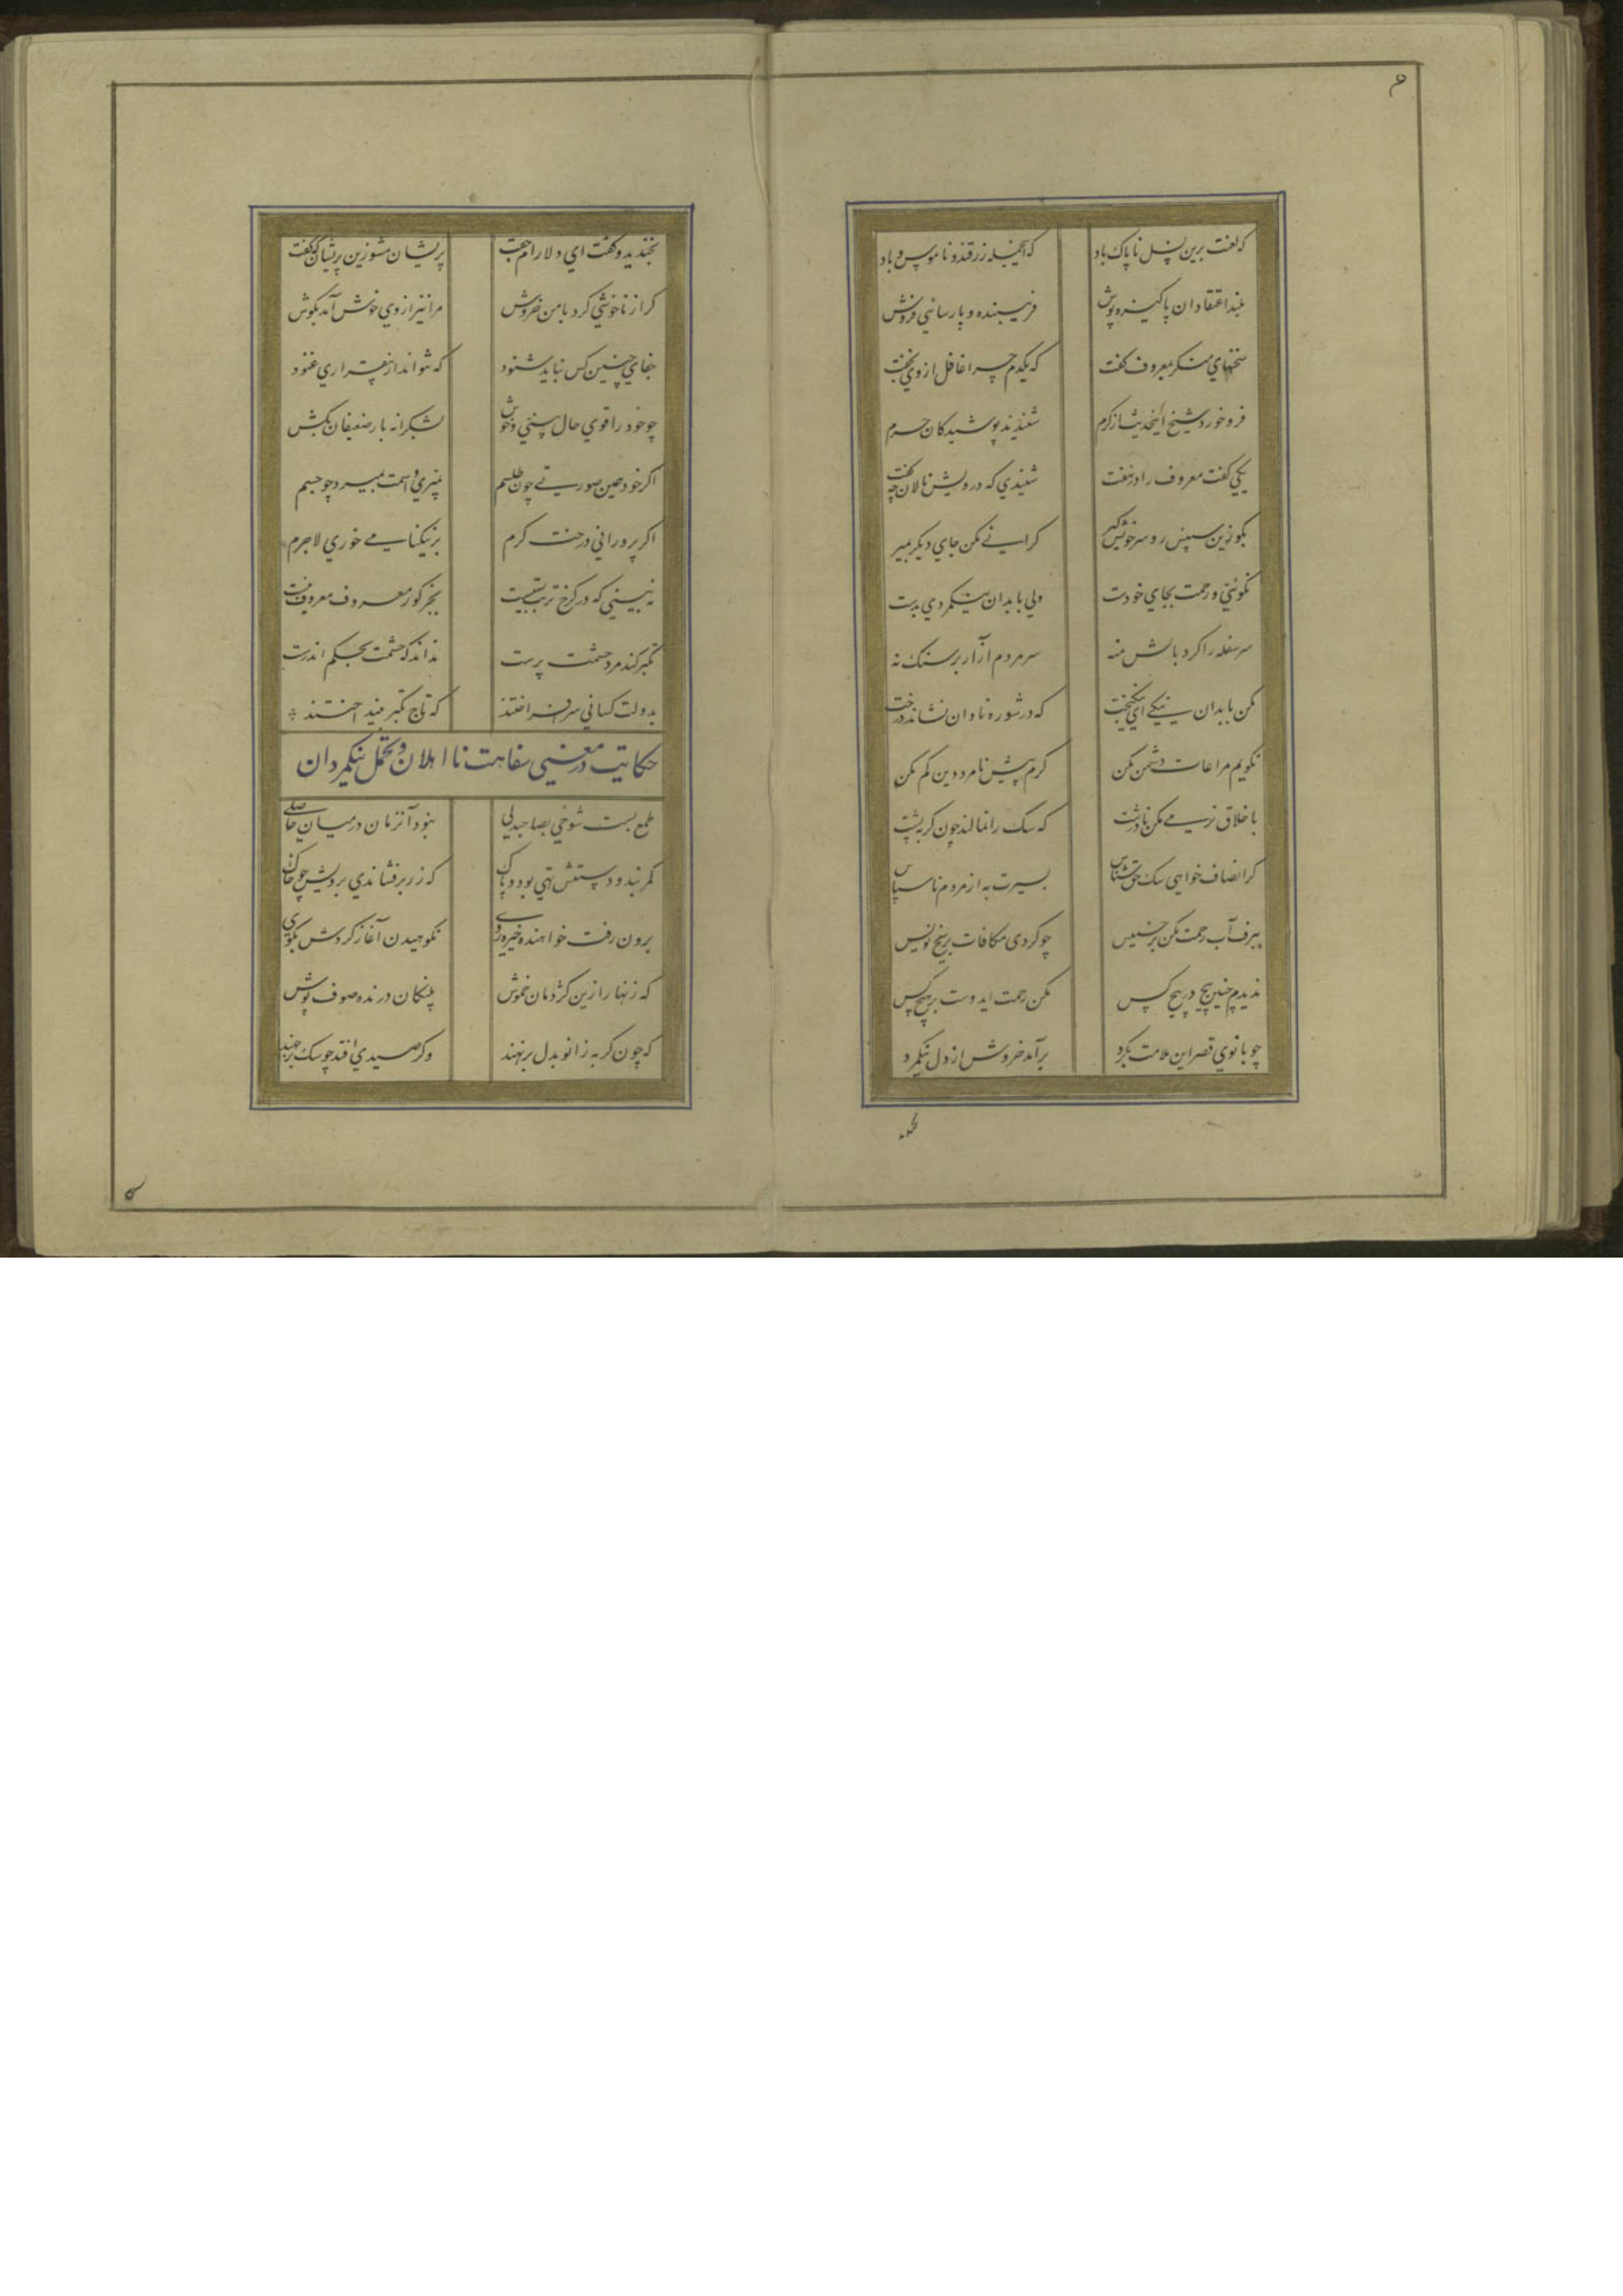 ۶
که لعنت برین نسل ناپاک باد که اینجمله زرقند و ناموس و باد
پلید اعتقادان پاکیزه پوش فریبنده و پارسائی فروش
سخنهای منکر بمعروف گفت که یکدم چرا غافل از وی بخفت
فرو خورد شیخ اینحدیث از کرم شنیدند پوشیدگان حرم
یکی گفت معروف را در نهفت شنیدی که درویش نالان چه گفت
بگو زین سپس رو سر خویش گیر گرانی مکن جای دیگر بمیر
نکوئی و رحمت بجای خودست ولی با بدان نیکمردی بدست
سر سفله را گرد بالش منه سر مردم آزار بر سنگ نه
مکن با بدان نیکی ای نیکبخت که در شوره نادان نشاند درخت
نگویم مراعات دشمن مکن کرم پیش نامردمین کم مکن
باخلاق نرمی مکن با درشت که سگ را نمالند چون گربه پشت
گر انصاف خواهی سگ حق شناس بسیرت به از مردم ناسپاس
ببرف آب رحمت مکن بر خسیس چو کردی مکافات بر یخ نویس
ندیدم چنین پیچ در پیچ کس مکن رحمت ایدوست بر هیچ کس
چو بانوی قصر این ملامت بکرد برآمد خروش از دل نیکمرد
بخندید و گفت ای دلارام جفت پریشان مشو زین پریشان که گفت
گر از ناخوشی کرد با من خروش مرا نیز از وی خوش آمد بگوش
جفای چنین کس نباید شنود که نتواند از بیقراری غنود
چو خود را قوی حال بینی و خوش بشکرانه بار ضعیفان بکش
اگر خود همین صورتی چون طلسم بمیری و اسمت بمیرد چو جسم
اگر پرورانی درخت کرم بر نیکنامی خوری لاجرم
نه بینی که در کرخ تربت بسیست بجز گور معروف معروف نیست
تکبر کند مرد حشمت پرست نداند که حشمت بحلم اندرست
بدولت کسانی سر افراختند که تاج تکبر بینداختند
حکایت در معنی سفاهت نااهلان و تحمل نیکمردان
طمع بست شوخی بصاحبدلی نبود آنزمان در میان حاصلی
کمربند و دستش تهی بود و پاک که زر برفشاندی برویش چو خاک
برون رفت خواهنده خیره روی نکوهیدن آغاز کردش بکوی
که زنهار ازین کژدمان خموش پلنگان درنده صوف پوش
که چون گربه زانو بدل برنهند وگر صیدی افتد چو سگ برجهند